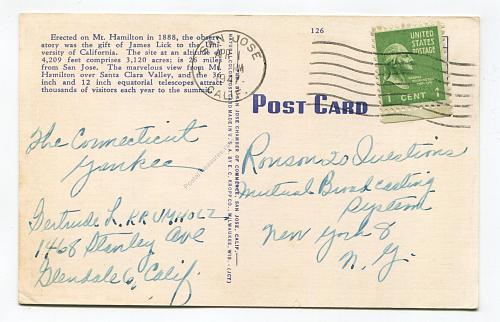 Erected on Mt. Hamilton in 1888, the observ-
atory was the gift of James Lick to the Uni-
versity of California. The site at an altitude of
4,209 feet comprises 3,120 acres; is 26 miles
from San Jose. The marvelous view from Mt.
Hamilton over Santa Clara Valley, and the 36
inch and 12 inch equatorial telescopes attract
thousands of visitors each year to the summit.
126
SAN JOSE
CALIF.
UNITED STATES
POSTAGE
1 CENT 1
POST CARD
SAN JOSE CHAMBER OF COMMERCE, SAN JOSE, CALIF.
MADE IN U. S. A. BY E. C. KROPP CO., MILWAUKEE, WIS.
The Connecticut
Yankee
Gertrude L. KRUMHOLZ
1468 Stanley Ave
Glendale 6, Calif.
Ronson 20 Questions
Mutual Broadcasting
System
New York 8
N. Y.